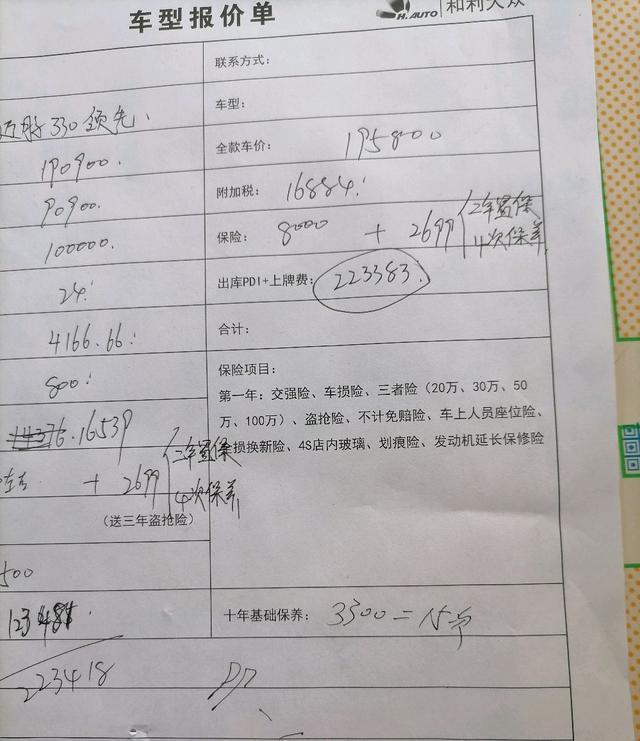 车型报价单
H.AUTO
和利大众
330 领先
190900.
90900.
100000.
24.
4166.66.
800.
16539
+ 2699 三年质保
4次保养
(送三年盗抢险)
500
223418
联系方式:
车型:
全款车价: 195800
附加税: 16884.
保险: 8000 + 2699
4次保养
出库PDI+上牌费: 223383.
合计:
保险项目:
第一年: 交强险、车损险、三者险(20万、30万、50
万、100万)、盗抢险、不计免赔险、车上人员座位险、
损换新险、4S店内玻璃、划痕险、发动机延长保修险
十年基础保养: 3300=